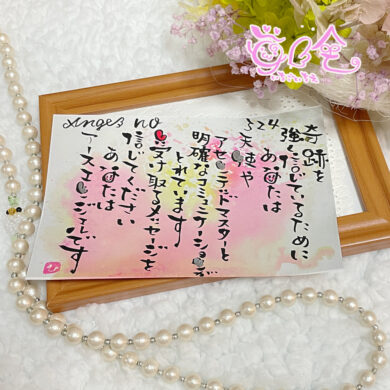 Angel no
324
奇跡を
強く信じているために
あなたは
天使や
アセンデッドマスターと
明確なコミュニケーションが
とれています
受け取るメッセージを
信じてください
あなたは
アースエンジェルです